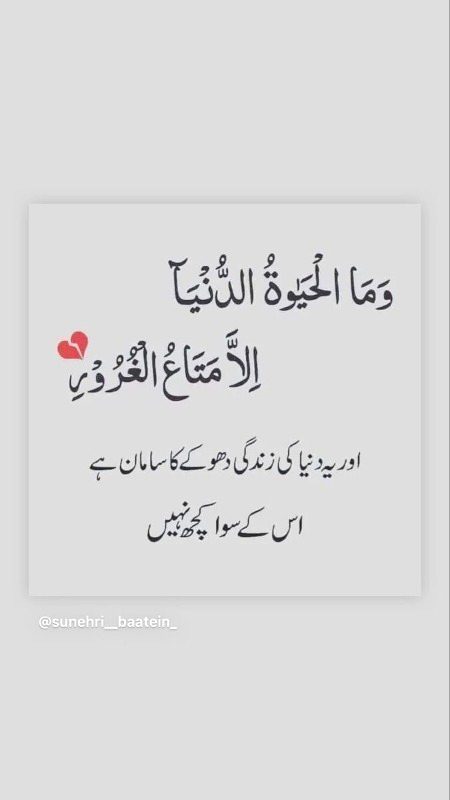 وَمَا الْحَيٰوةُ الدُّنْيَآ
اِلاَّ مَتَاعُ الْغُرُوْرِ
اور یہ دنیا کی زندگی دھوکے کا سامان ہے
اس کے سوا کچھ نہیں
@sunehri__baatein_